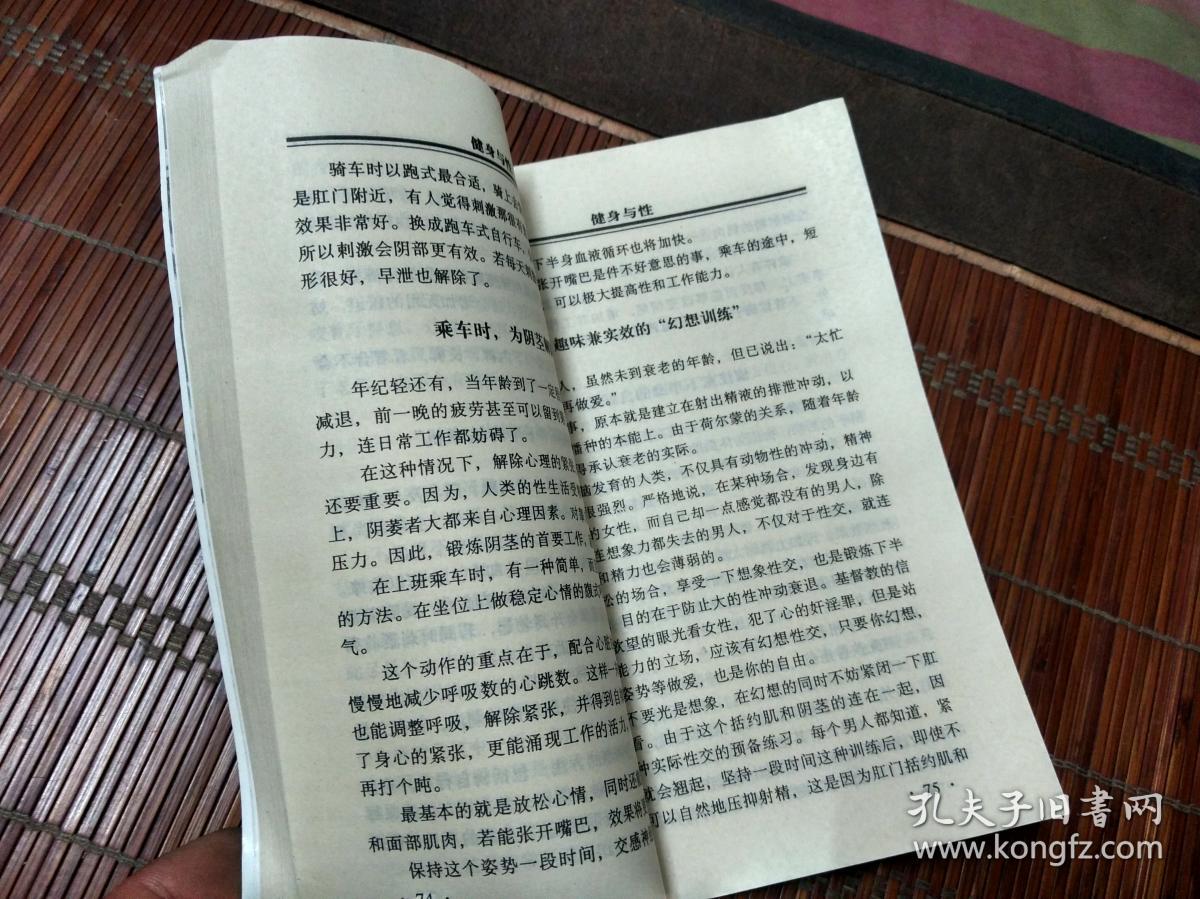 健身与性
骑车时以跑式最合适，骑上去
是肛门附近，有人觉得刺激那很有
效果非常好。换成跑车式自行车，
所以刺激会阴部更有效。若每天
形很好，早泄也解除了。
乘车时，为阴茎
年纪轻还有，当年龄到了一定
减退，前一晚的疲劳甚至可以留到
力，连日常工作都妨碍了。
在这种情况下，解除心理的紧
还要重要。因为，人类的性生活受
上，阴萎者大都来自心理因素。对
压力。因此，锻炼阴茎的首要工作，
在上班乘车时，有一种简单，而
的方法。在坐位上做稳定心情的腹式
气。
这个动作的重点在于，配合心脏
慢慢地减少呼吸数的心跳数。这样一
也能调整呼吸，解除紧张，并得到自
了身心的紧张，更能涌现工作的活力
再打个盹。
最基本的就是放松心情，同时还
和面部肌肉，若能张开嘴巴，效果将
保持这个姿势一段时间，交感神
· 74 ·
健身与性
下半身血液循环也将加快。
张开嘴巴是件不好意思的事，乘车的途中，短
可以极大提高性和工作能力。
趣味兼实效的“幻想训练”
人，虽然未到衰老的年龄，但已说出：“太忙
再做爱。”
事，原本就是建立在射出精液的排泄冲动，以
播种的本能上。由于荷尔蒙的关系，随着年龄
得承认衰老的实际。
脑发育的人类，不仅具有动物性的冲动，精神
很强烈。严格地说，在某种场合，发现身边有
的女性，而自己却一点感觉都没有的男人，除
连想象力都失去的男人，不仅对于性交，就连
和精力也会薄弱的。
松的场合，享受一下想象性交，也是锻炼下半
目的在于防止大的性冲动衰退。基督教的信
欲望的眼光看女性，犯了心的奸淫罪，但是站
能力的立场，应该有幻想性交，只要你幻想，
姿势等做爱，也是你的自由。
不要光是想象，在幻想的同时不妨紧闭一下肛
看。由于这个括约肌和阴茎的连在一起，因
种实际性交的预备练习。每个男人都知道，紧
就会翘起，坚持一段时间这种训练后，即使不
可以自然地压抑射精，这是因为肛门括约肌和
· 75 ·
孔夫子旧书网
www.kongfz.com